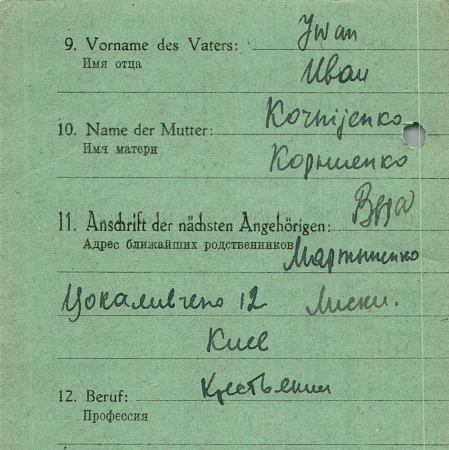 9. Vorname des Vaters: Jwan
Имя отца Иван
Kornijenko
10. Name der Mutter:
Имя матери Корниенко
11. Anschrift der nächsten Angehörigen: Вера
Адрес ближайших родственников Мартыненко
12 Лиски.
Киев
12. Beruf: Крестьянин
Профессия